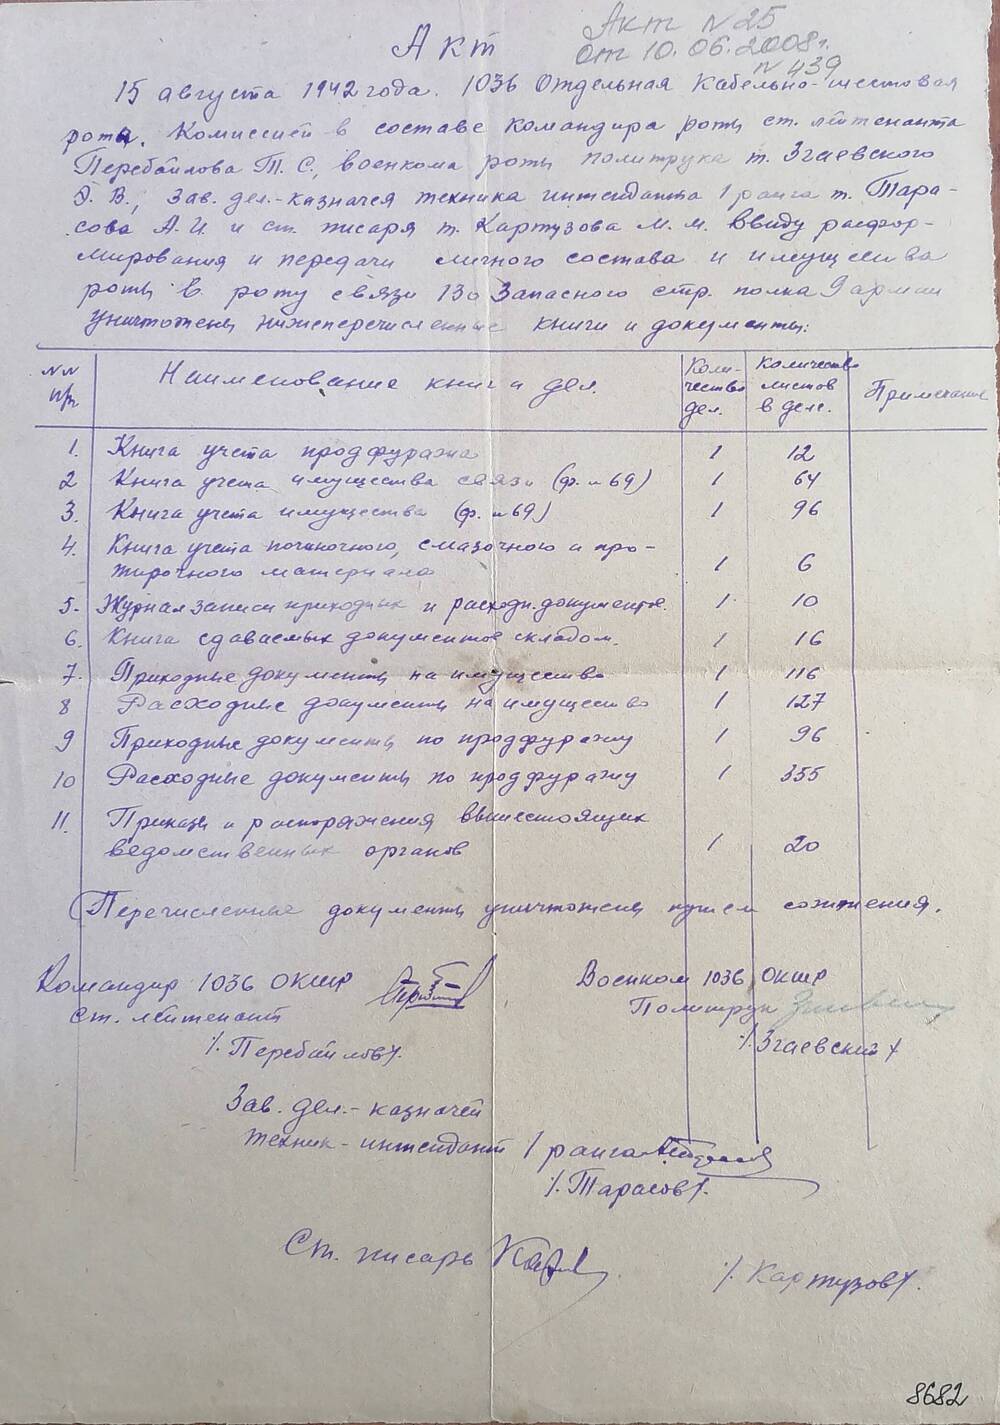 Акт N 25
от 10.06.2008г.
N 439
Акт
15 августа 1942 года. 1036 Отдельная Кабельно-шестовая
рота. Комиссией в составе командира роты ст. лейтенанта
Перебайлова Т. С., военкома роты политрука т. Згаевского
В., Зав. дел.-казначея техника интенданта 1 ранга т. Тара-
сова А. И. и ст. писаря т. Картузова М. М. ввиду расфор-
мирования и передачи личного состава и имущества
роты в роту связи 130 Запасного стр. полка 9 армии
уничтожены нижеперечисленные книги и документы:
NN п/п | Наименование книг и дел. | Коли-чество дел. | Количество листов в деле. | Примечание
1. Книга учета продфуража 1 12
2 Книга учета имущества связи (ф. N 69) 1 64
3. Книга учета имущества (ф. N 69) 1 96
4. Книга учета починочного, смазочного и про-
жирочного материала 1 6
5. Журнал записи приходных и расходн. документов. 1 10
6. Книга сдаваемых документов складом. 1 16
7. Приходные документы на имущество 1 116
8 Расходные документы на имущество 1 127
9 Приходные документы по продфуражу 1 96
10 Расходные документы по продфуражу 1 355
11. Приказы и распоряжения вышестоящих
ведомственных органов 1 20
Перечисленные документы уничтожены путем сожжения.
Командир 1036 ОКШР
Ст. лейтенант
/. Перебайлов/.
Военком 1036 ОКШР
Политрук
/. Згаевский/
Зав. дел.-казначей
техник-интендант 1 ранга
/. Тарасов/.
Ст. писарь
/. Картузов/.
8682